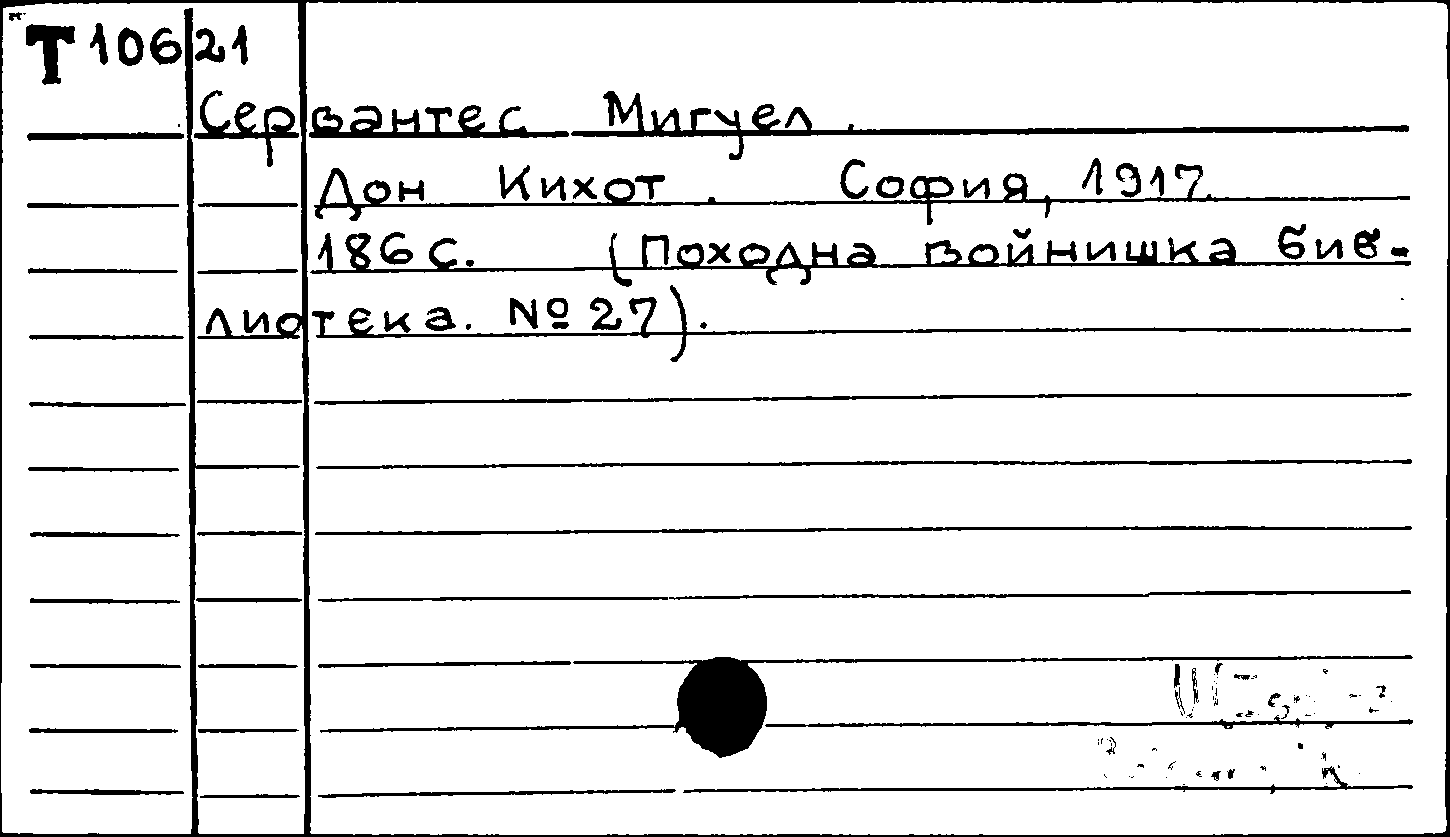 Т 10621
Сервантес Мигуел.
Дон Кихот. София, 1917.
186 с. (Походна войнишка биб-
лиотека. № 27).